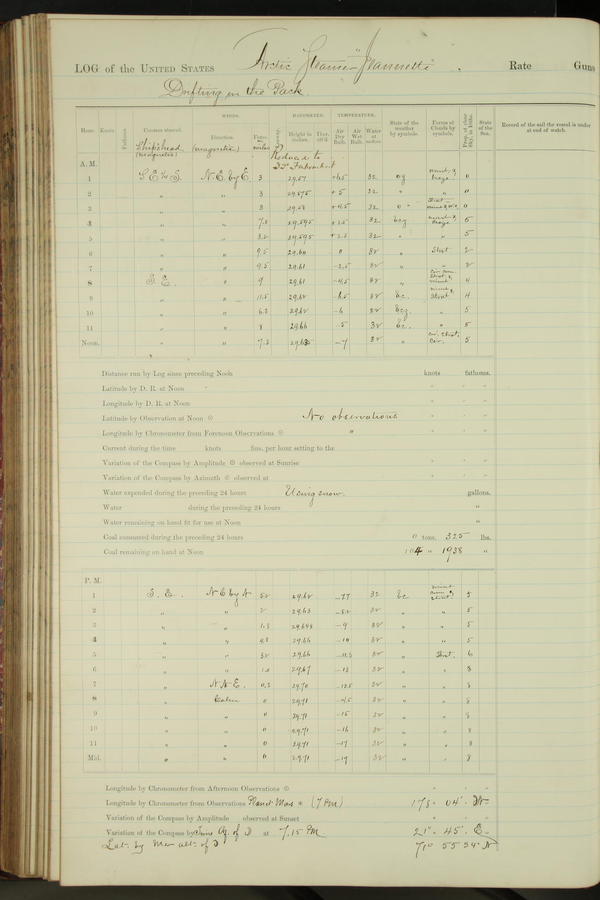 LOG of the UNITED STATES Arctic Steamer "Jeannette". Rate Guns
Drifting in the Pack
WINDS. BAROMETER. TEMPERATURE.
Hour. Knots. Fathoms. Courses steered. Direction. Force Leeway. Height in inches. Ther. att'd. Air Dry Bulb. Air Wet Bulb. Water at surface. State of the weather by symbols. Forms of Clouds by symbols. Prop. of clear Sky, in tenths. State of the Sea. Record of the sail the vessel is under at end of watch.
Ship's head (magnetic) (magnetic) miles
Reduced to 32° Fahrenheit
A. M.
1 S E by S. N. E. by E. 3 29.57 +6.5 32 og 0
2 " " 3 29.575 +5 32 " " 0
3 " " 3 29.58 +4.5 32 0
4 " " 29.595 32 bcg 5
5 " " 29.595 32 " " 5
6 " " 9.5 29.60 0 32 " Strat 2
7 " " 9.5 29.61 -2.5 32 " " 2
8 S. E. " 9 29.61 -4.5 32 " 4
9 " " 11.5 29.62 32 bc. Strat 4
10 " " 6.3 29.62 -6 32 bcg. " 5
11 " " 8 29.66 -5 32 bc. " 5
Noon. " " 7.3 29.635 -7 32 " Cir. Strat. Cir. 5
Distance run by Log since preceding Noon knots fathoms.
Latitude by D. R. at Noon
Longitude by D. R. at Noon
Latitude by Observation at Noon No observations
Longitude by Chronometer from Forenoon Observations "
Current during the time knots fms. per hour setting to the
Variation of the Compass by Amplitude observed at Sunrise
Variation of the Compass by Azimuth observed at
Water expended during the preceding 24 hours Using snow. gallons.
Water during the preceding 24 hours "
Water remaining on hand fit for use at Noon "
Coal consumed during the preceding 24 hours 0 tons, 325 lbs.
Coal remaining on hand at Noon 104 " 1938 "
P. M.
1 S. E. N E by N 29.62 32 bc 5
2 " 2 29.63 32 " " 5
3 " " 1.3 -9 32 " " 5
4 " " 29.66 -10 32 " " 5
5 " " 29.66 32 " Strat. 6
6 " " 29.67 -12 32 " " 8
7 " N N E. 0.3 29.70 -12.5 32 " " 8
8 " Calm 0 29.71 32 " " 8
9 " " 0 29.71 -15 32 " " 8
10 " " 0 29.71 -16 32 " " 8
11 " " 0 29.71 -17 32 " " 8
Mid. " " 0 29.71 -17 32 " " 8
Longitude by Chronometer from Afternoon Observations
Longitude by Chronometer from Observations Planet Mars * (7 PM) 178° 04' W
Variation of the Compass by Amplitude observed at Sunset
Variation of the Compass by Az. of at 7.15 PM 21° 45' E.
Lat. by Mer alt. of 71° 55 54" N